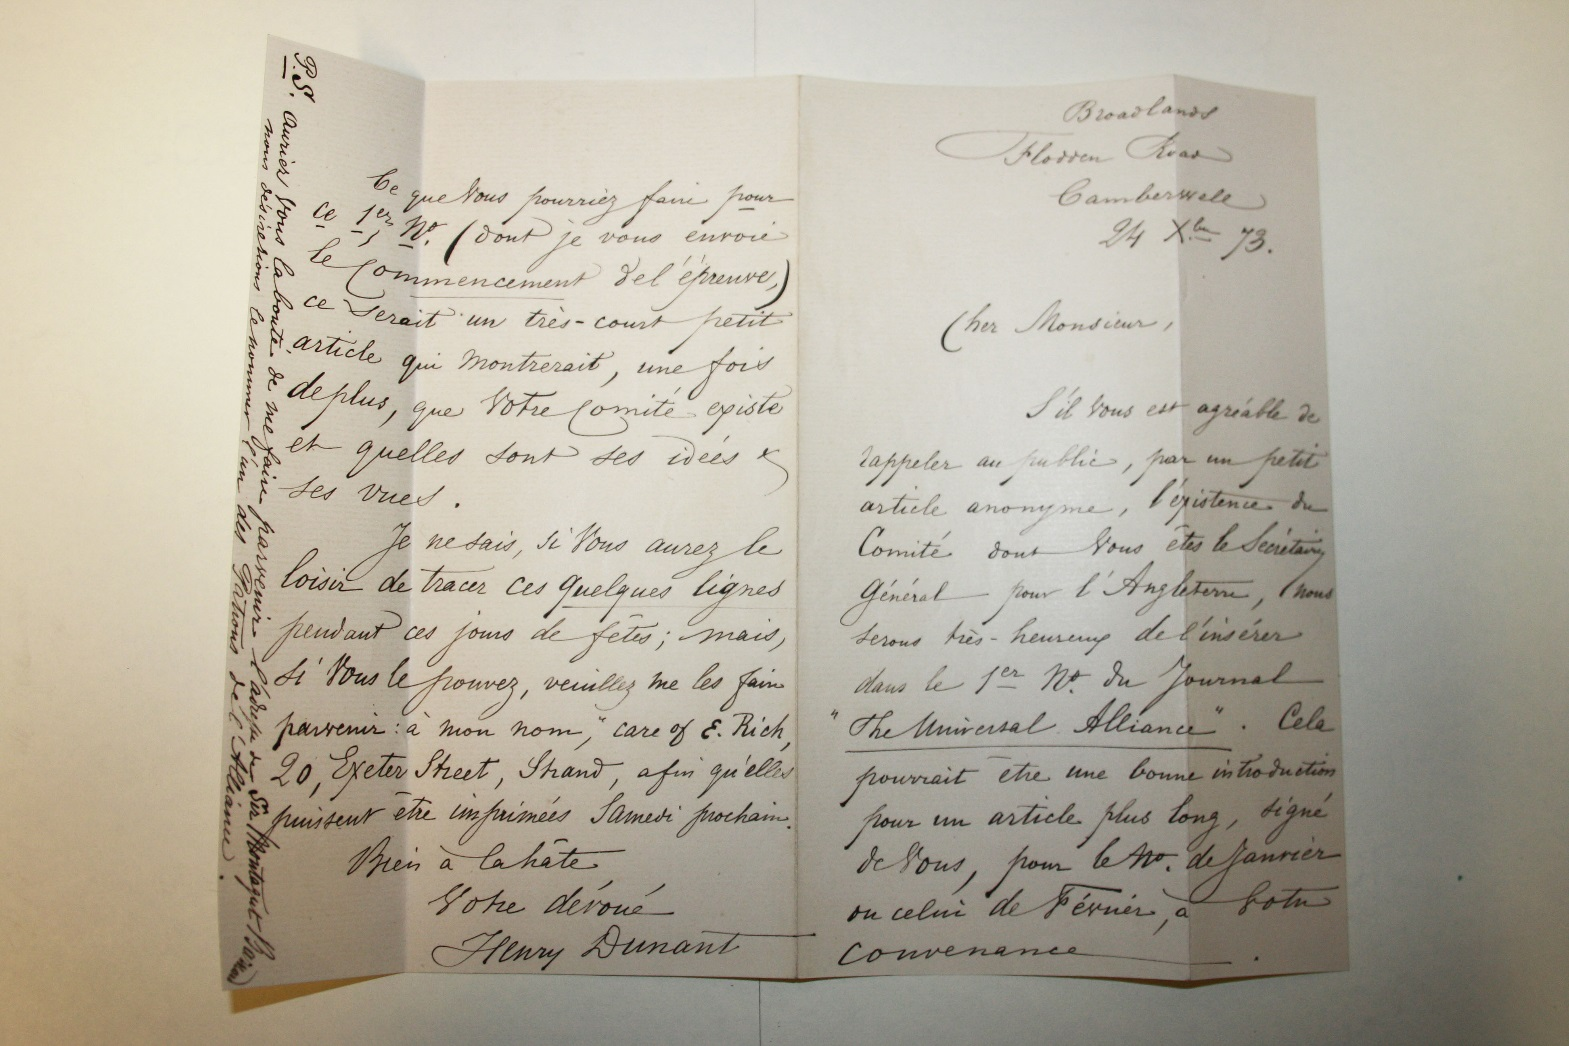 Broadlands
Flodden Road
Camberwell
24 Xbre 73.
Cher Monsieur,
S'il Vous est agréable de
rappeler au public, par un petit
article anonyme, l'existence du
Comité dont Vous êtes le Secrétaire
Général pour l'Angleterre, nous
serons très-heureux de l'insérer
dans le 1er No. du Journal
"The Universal Alliance". Cela
pourrait être une bonne introduction
pour un article plus long, signé
de Vous, pour le No. de Janvier
ou celui de Février, à votre
convenance.
Ce que Vous pourriez faire pour
ce 1er No. (dont je vous envoie
le commencement de l'épreuve,)
ce serait un très-court petit
article qui montrerait, une fois
de plus, que Votre Comité existe
et quelles sont ses idées &
ses vues.
Je ne sais, si Vous aurez le
loisir de tracer ces quelques lignes
pendant ces jours de fêtes; mais,
si Vous le pouvez, veuillez me les faire
parvenir: à mon nom, "care of E. Rich,
20, Exeter Street, Strand, afin qu'elles
puissent être imprimées Samedi prochain.
Bien à la hâte
Votre dévoué
Henry Dunant
P.S. Auriez Vous la bonté de me faire parvenir l'adresse de Sir Montagut
nous désirerions le nommer l'un des Patrons de l'Alliance.